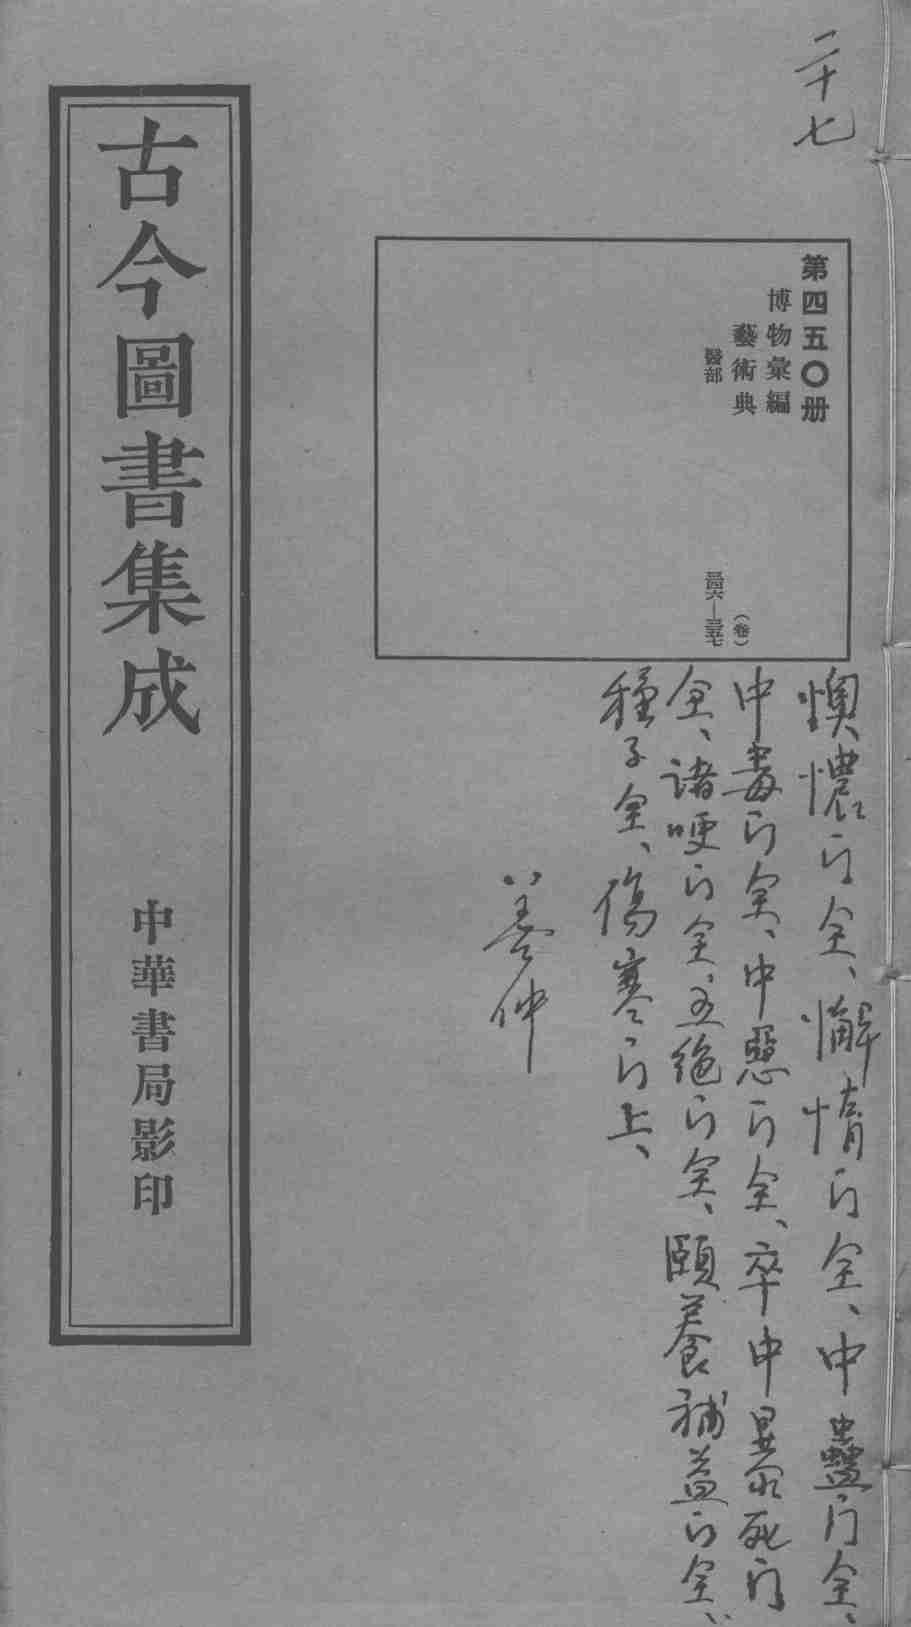 二十七
第四五〇册
博物彙編
藝術典
醫部
（卷）
三四六—三五七
懊憹门全、懈惰门全、中蠱门全、
中毒门全、中惡门全、卒中暴死门
全、诸哽门全、五绝门全、頤養補益门全、
種子全、傷寒门上、
古今圖書集成
中華書局影印